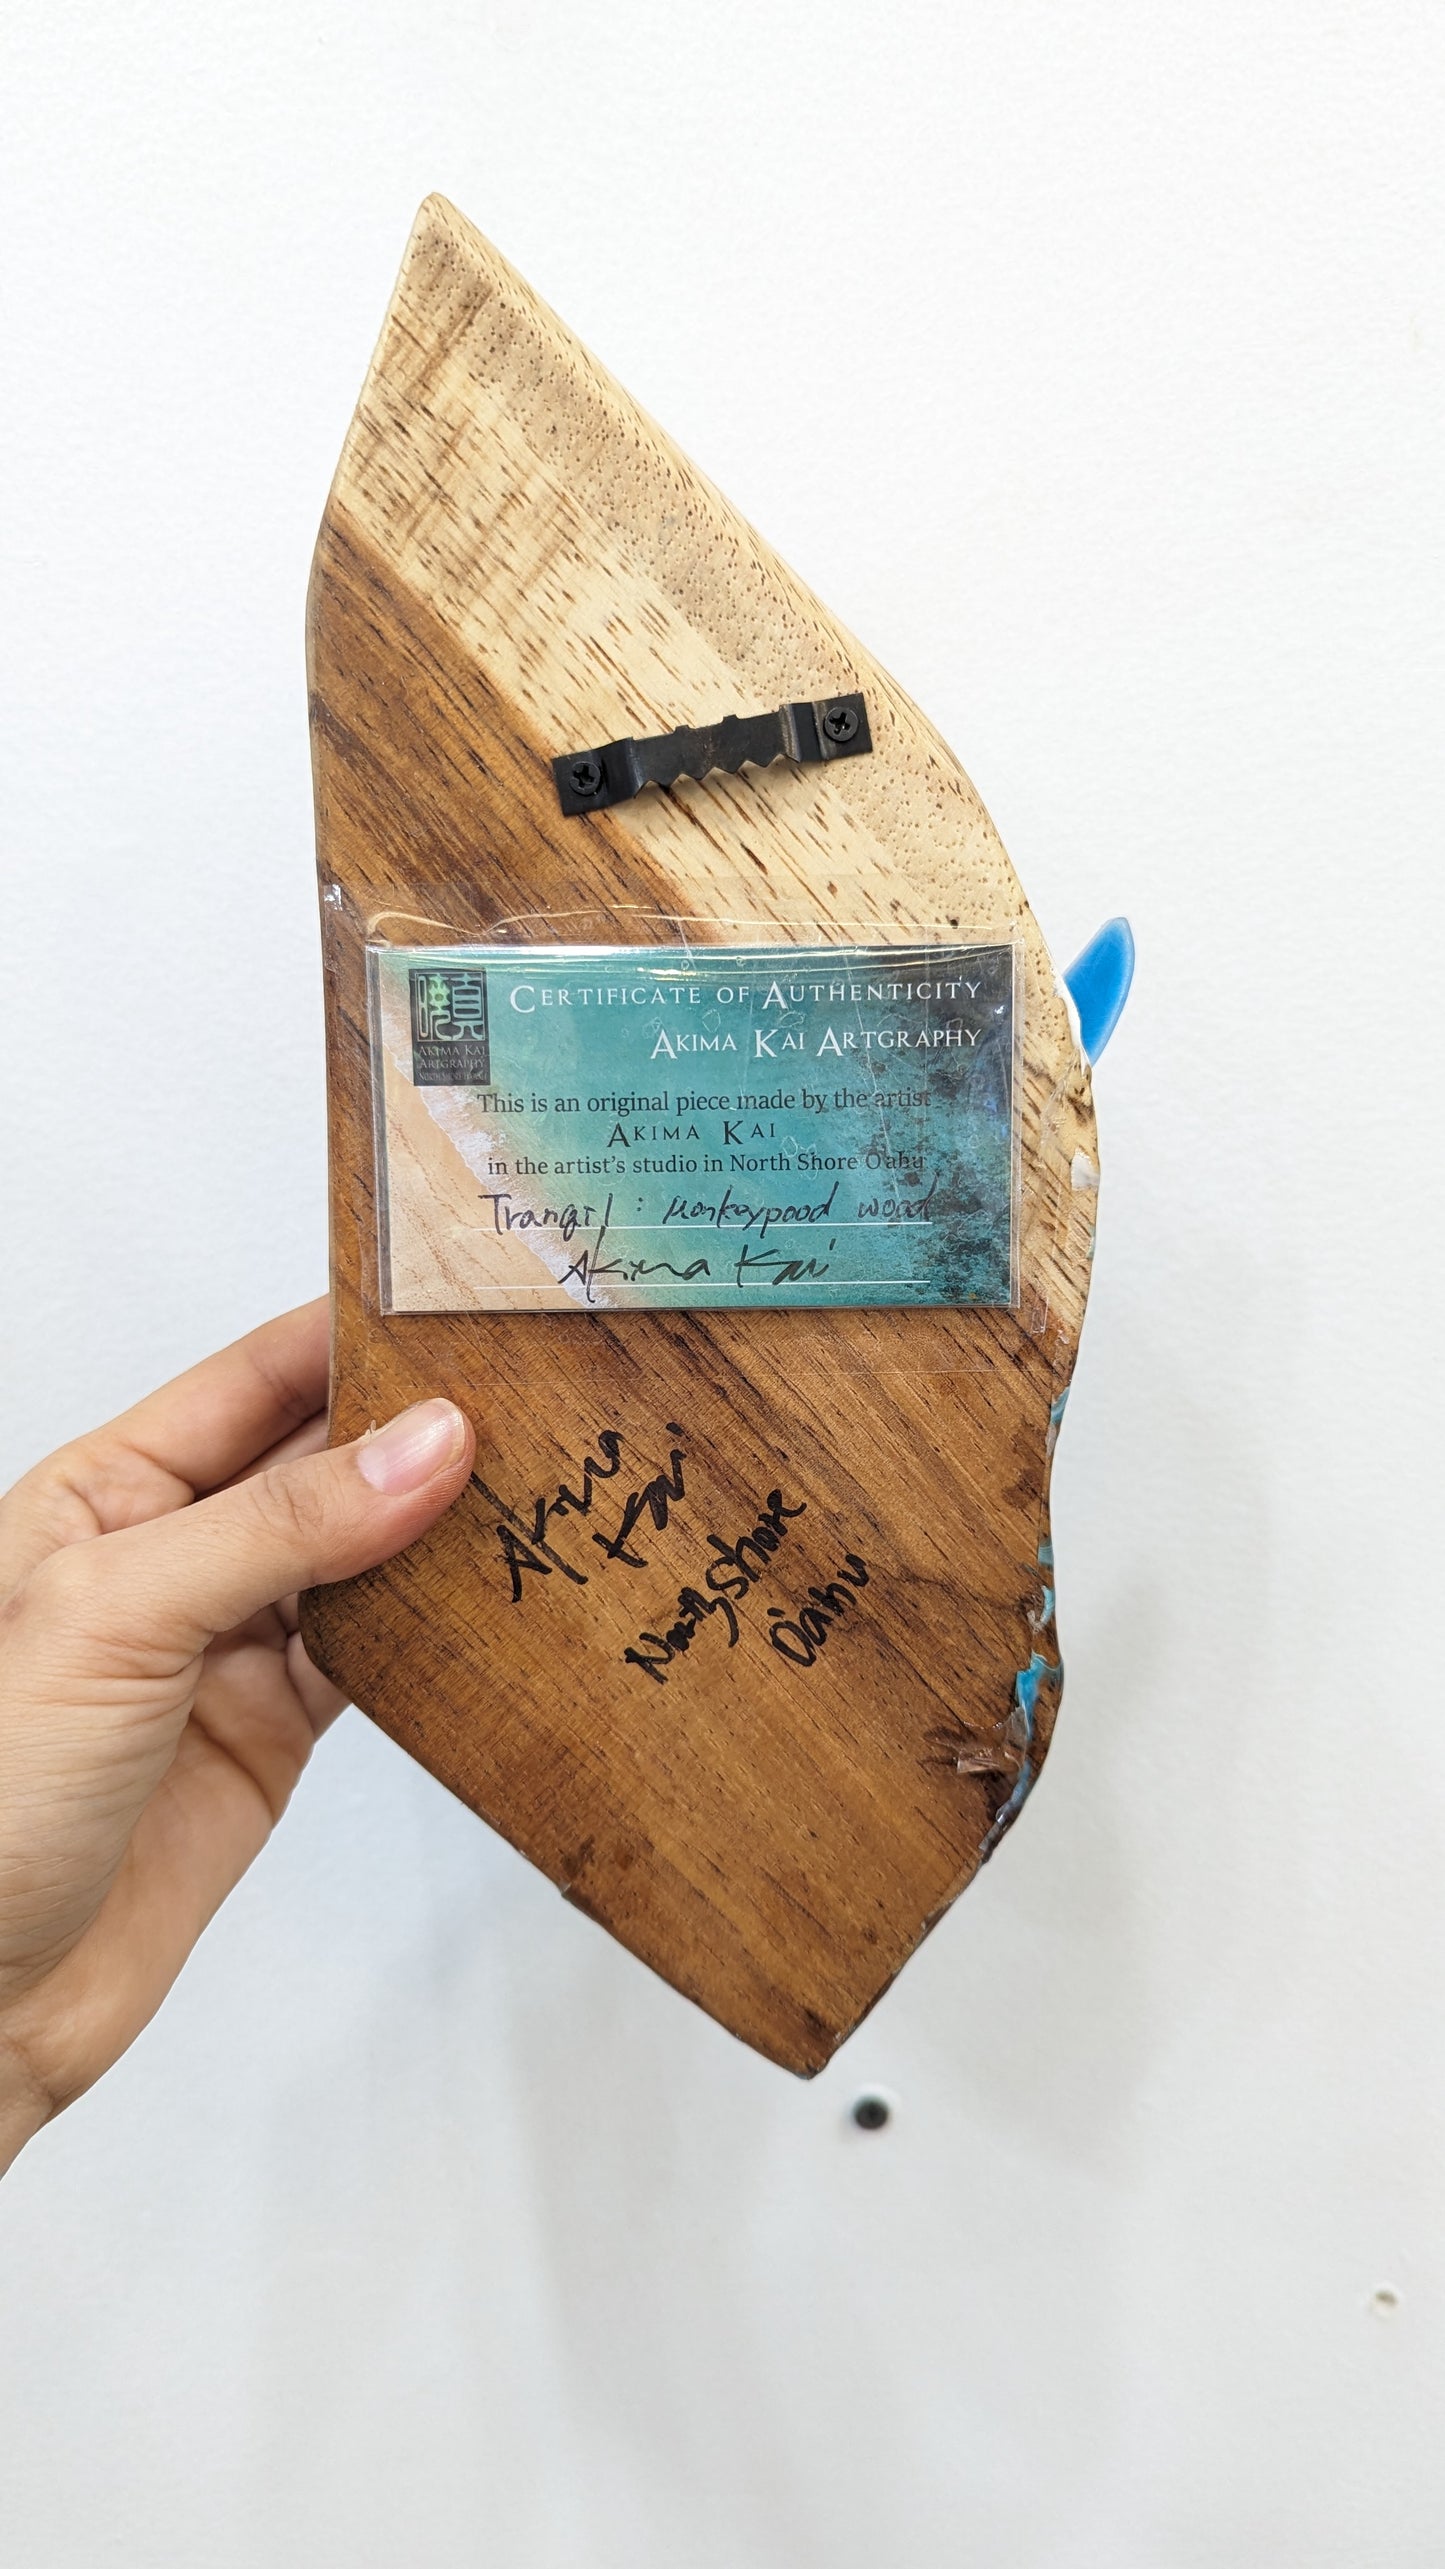 CERTIFICATE OF AUTHENTICITY
AKIMA KAI ARTGRAPHY
AKIMA KAI
ARTGRAPHY
This is an original piece made by the artist
AKIMA KAI
in the artist's studio in North Shore O'ahu
Tranqil : Monkeypood wood
Akima Kai
Akima
Kai
North Shore
O'ahu